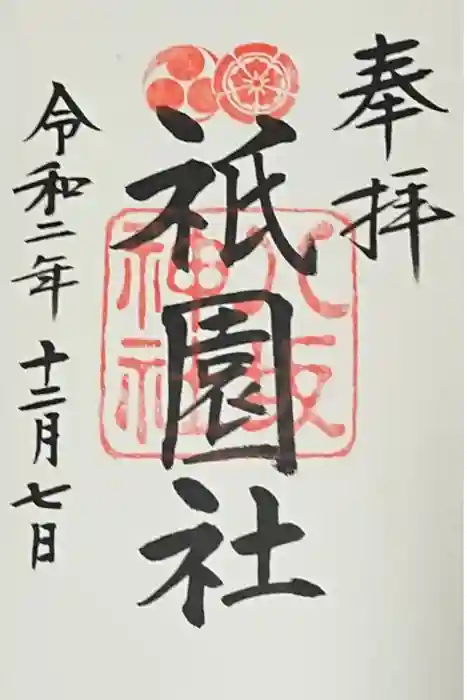 奉拝
祇園社
八坂
神社
令和二年十二月七日